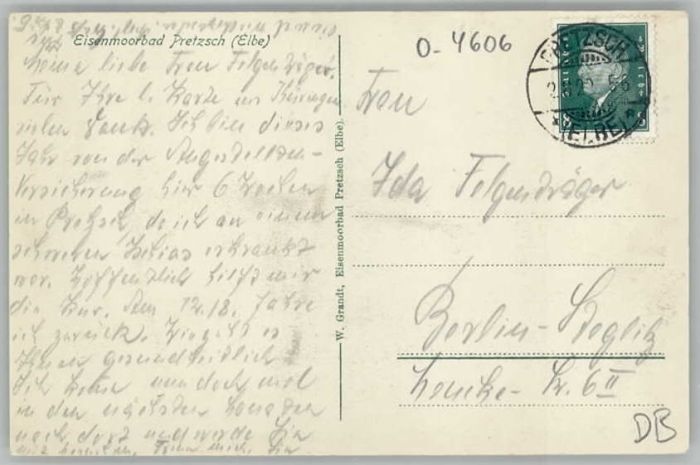 Eisenmoorbad Pretzsch (Elbe)
Meine liebe Frau Felgenträger.
Für Ihre l. Karte aus Thüringen
vielen Dank. Ich bin dieses
Jahr von der Angestellten-
Versicherung hier 6 Wochen
in Pretzsch, da ich an einem
schweren Ischias erkrankt
war. Hoffentlich hilft mir
die Kur. Am 12./8. fahre
ich zurück. Wie geht es
Ihnen gesundheitlich
Ich komme mal
in den nächsten
nach dort und werde Sie
W. Grandt, Eisenmoorbad Pretzsch (Elbe).
O-4606
PRETZSCH
(ELBE)
Frau
Ida Felgenträger
Berlin-Steglitz
Str. 6 II
DB